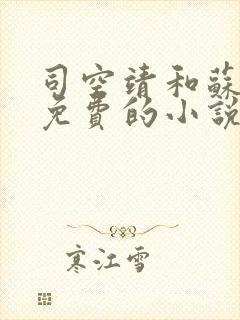 司空靖和蘇
免費的小說
寒江雪